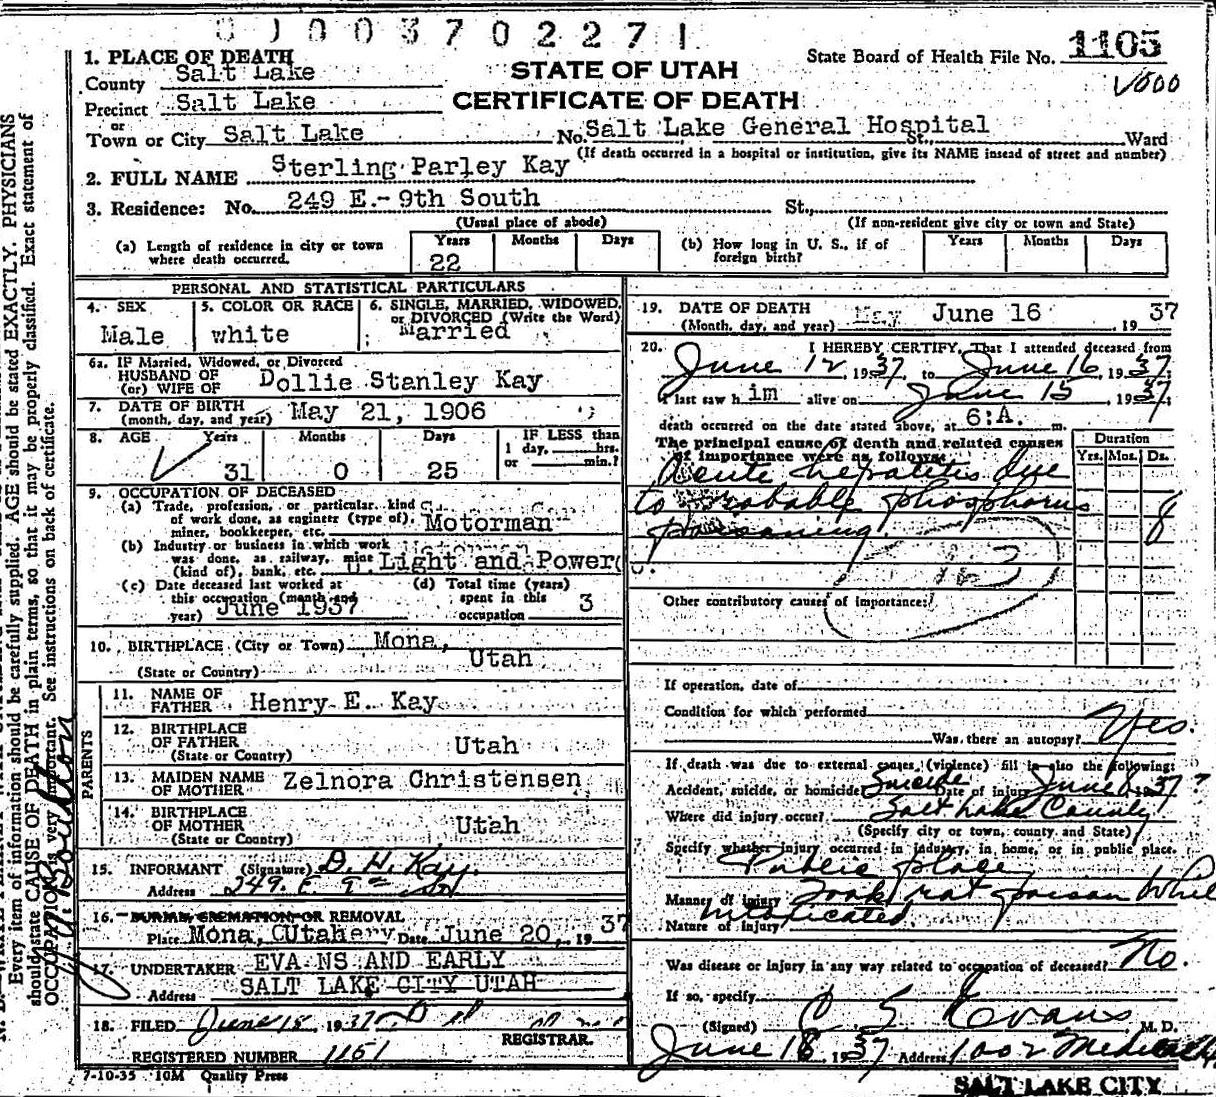 0 0 0 3 7 0 2 2 7 1
State Board of Health File No. 1105
1000
STATE OF UTAH
CERTIFICATE OF DEATH
1. PLACE OF DEATH
County Salt Lake
Precinct Salt Lake
or
Town or City Salt Lake No. Salt Lake General Hospital St., Ward
(If death occurred in a hospital or institution, give its NAME insead of street and number)
2. FULL NAME Sterling Parley Kay
3. Residence: No. 249 E.- 9th South St.,
(Usual place of abode) (If non-resident give city or town and State)
(a) Length of residence in city or town where death occurred. Years 22 Months Days
(b) How long in U. S., if of foreign birth? Years Months Days
PERSONAL AND STATISTICAL PARTICULARS
4. SEX Male
5. COLOR OR RACE white
6. SINGLE, MARRIED, WIDOWED, or DIVORCED (Write the Word) Married
6a. IF Married, Widowed, or Divorced
HUSBAND OF
(or) WIFE OF Dollie Stanley Kay
7. DATE OF BIRTH
(month, day, and year) May 21, 1906
8. AGE Years 31 Months 0 Days 25 IF LESS than 1 day, hrs. or min.?
9. OCCUPATION OF DECEASED
(a) Trade, profession, or particular kind of work done, as engineer (type of), miner, bookkeeper, etc. Motorman
(b) Industry or business in which work was done, as railway, mine (kind of), bank, etc. Light and Power
(c) Date deceased last worked at this occupation (month and year) June 1937
(d) Total time (years) spent in this occupation 3
10. BIRTHPLACE (City or Town) Mona,
(State or Country) Utah
PARENTS
11. NAME OF FATHER Henry E. Kay
12. BIRTHPLACE OF FATHER Utah
(State or Country)
13. MAIDEN NAME OF MOTHER Zelnora Christensen
14. BIRTHPLACE OF MOTHER Utah
(State or Country)
15. INFORMANT (Signature) D. H. Kay
Address 249 E 9th So
16. BURIAL, CREMATION OR REMOVAL
Place Mona, Utah Date June 20, 1937
17. UNDERTAKER EVANS AND EARLY
Address SALT LAKE CITY UTAH
18. FILED June 15, 1937
REGISTRAR.
REGISTERED NUMBER 1151
7-10-35 10M Quality Press
19. DATE OF DEATH
(Month, day, and year) June 16, 1937
20. I HEREBY CERTIFY, That I attended deceased from
June 12, 1937, to June 16, 1937
I last saw him alive on June 15, 1937;
death occurred on the date stated above, at 6:A. m.
The principal cause of death and related causes of importance were as follows:
Duration
Yrs. Mos. Ds.
Acute hepatitis due
to probable phosphorus 8
poisoning.
163
Other contributory causes of importance:
If operation, date of
Condition for which performed
Was there an autopsy? Yes.
If death was due to external causes, (violence) fill in also the following:
Accident, suicide, or homicide? Suicide Date of injury June 8 1937?
Where did injury occur? Salt Lake County
(Specify city or town, county and State)
Specify whether injury occurred in industry, in home, or in public place.
Public place
Manner of injury Took rat poison while
intoxicated
Nature of injury
Was disease or injury in any way related to occupation of deceased? No.
If so, specify
(Signed) C S Evans M. D.
June 18, 1937 Address 1002 Medical
SALT LAKE CITY
Every item of information should be carefully supplied. AGE should be stated EXACTLY. PHYSICIANS
should state CAUSE OF DEATH in plain terms, so that it may be properly classified. Exact statement of
OCCUPATION is very important. See instructions on back of certificate.